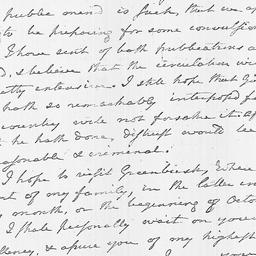 public mind is such, that we ap
to be preparing for some convulsion
I have sent of both publications a
, & believe that the circulation wi
etty extensive. I still hope that G
hath so remarkably interposed fo
country will not forsake it; aft
he hath done, distrust would be
asonable & criminal.
I hope to visit Greenbrier, where
nt of my family, in the latter en
month, or the beginning of Octo
I shall personally wait on your
llency, & assure you of my highest